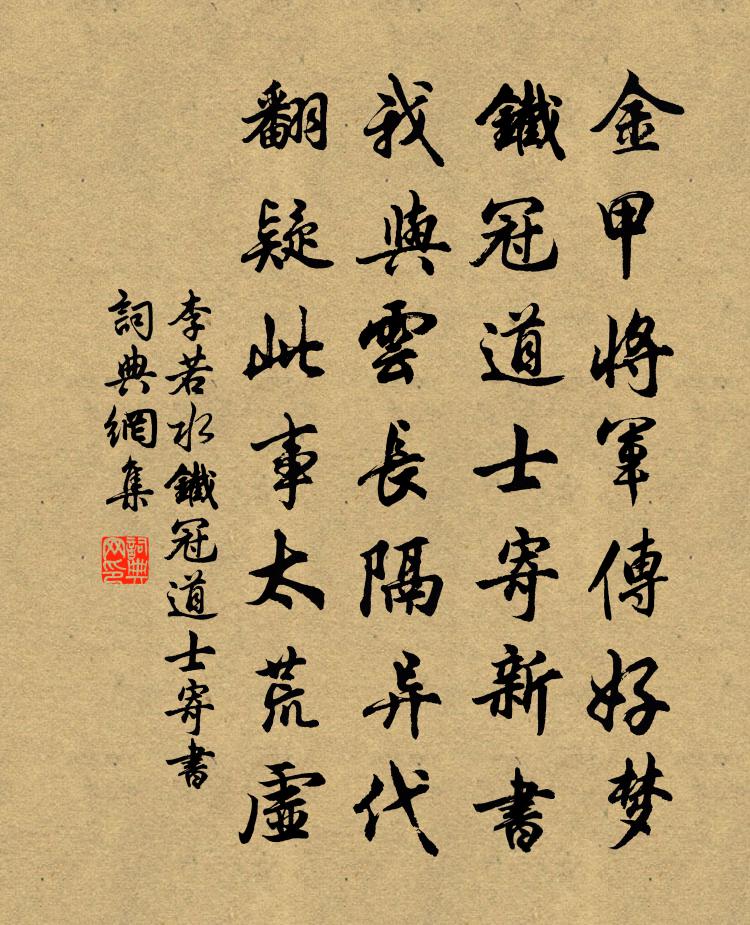 金甲將軍傳好梦
鐵冠道士寄新書
我與雲長隔异代
翻疑此事太荒虛
李若水鐵冠道士寄書
詞典網集
詞典
网印